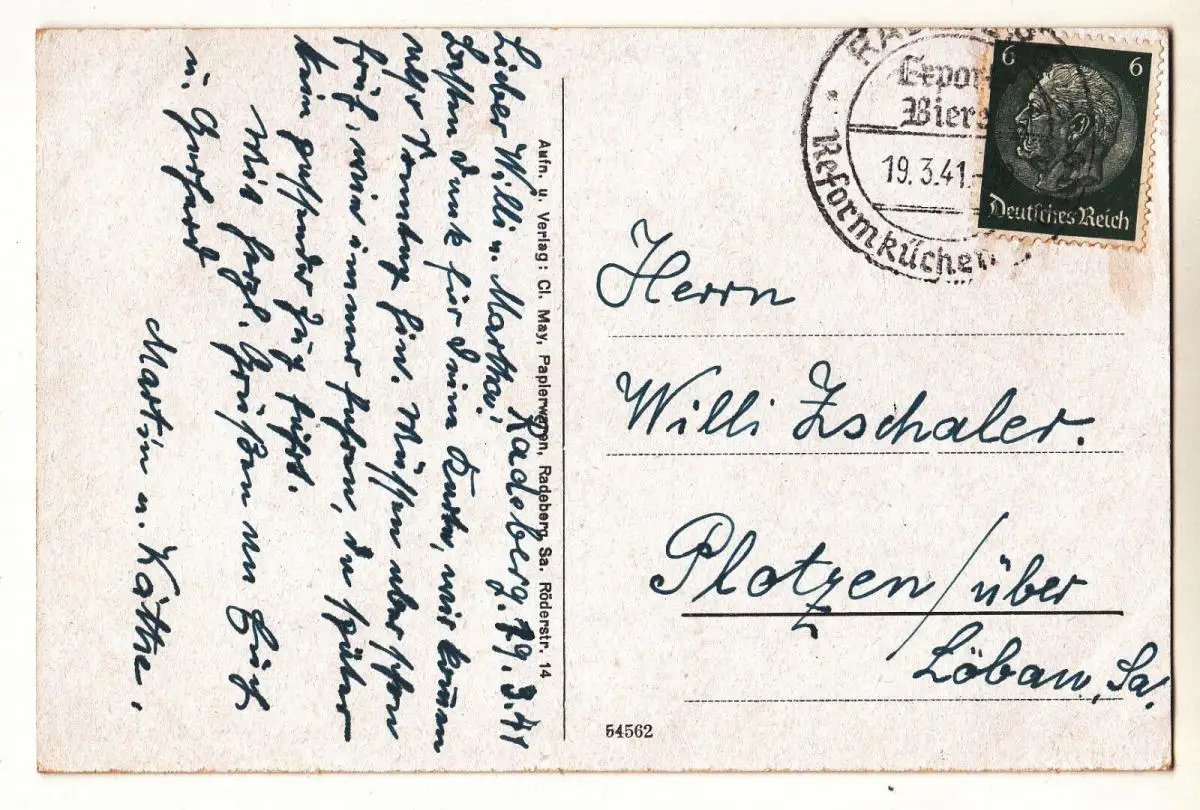 Radeberg, 19.3.41
Lieber Willi u. Martha!
Besten Dank für Deine Karte, wir kommen
also Sonntag hin. Müssen aber schon
früh, wie immer fahren, da später
kein passender Zug fährt.
Mit herzl. Grüßen an Euch
u. Gerhard
Martin u. Käthe.
Aufn. u. Verlag: Cl. May, Papierwaren, Radeberg, Sa. Röderstr. 14
54562
Export
Biers
19.3.41.
Reformküchen
6 6
Deutsches Reich
Herrn
Willi Zschaler.
Plotzen / über
Löbau, Sa.